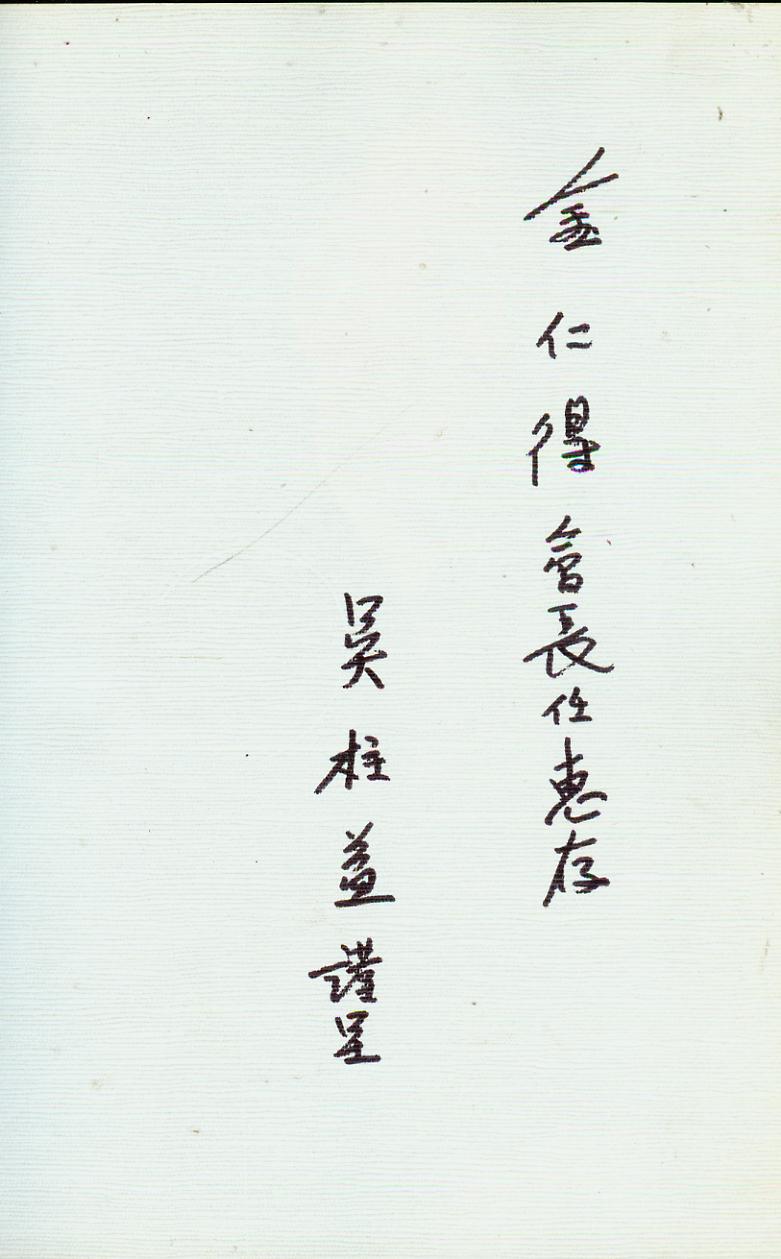 金仁得會長任惠存
吳柱益謹呈